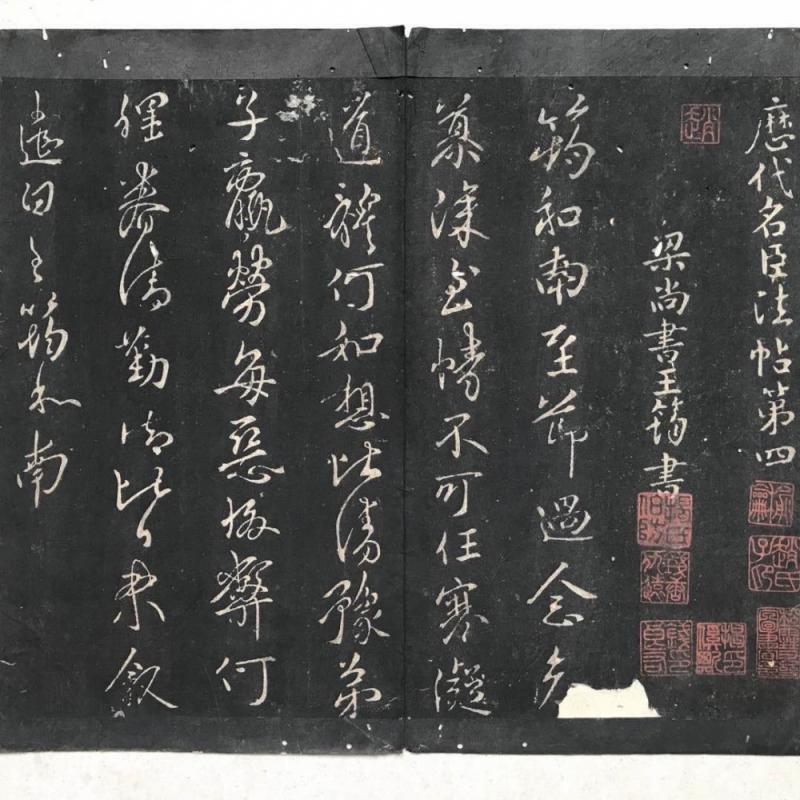 歷代名臣法帖第四
梁尚書王筠書
筠和南至節過念
慕深至情不可任寒凝
道體何如想比清豫弟
子羸勞每惡弊何
理眷清勤御比未敘
遣白王筠和南